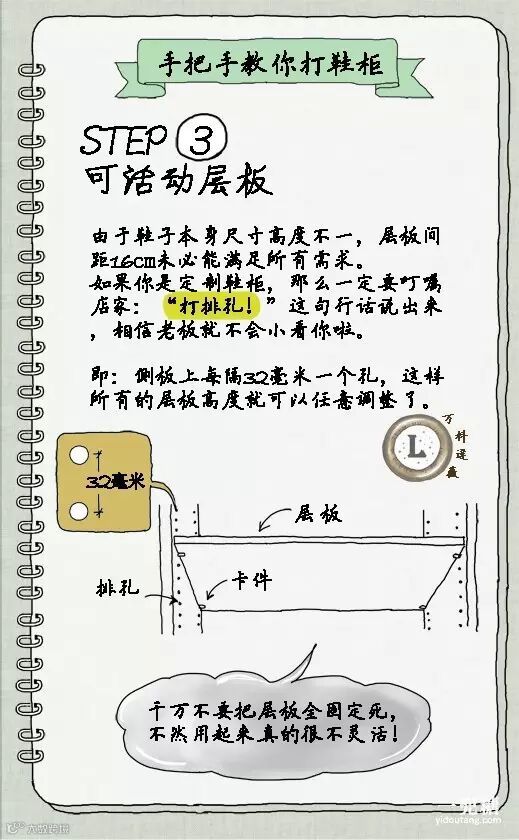 手把手教你打鞋柜
STEP ③
可活动层板
由于鞋子本身尺寸高度不一，层板间
距16cm未必能满足所有需求。
如果你是定制鞋柜，那么一定要叮嘱
店家：“打排孔！”这句行话说出来
，相信老板就不会小看你啦。
即：侧板上每隔32毫米一个孔，这样
所有的层板高度就可以任意调整了。
L
32毫米
层板
排孔
卡件
千万不要把层板全固定死，
不然用起来真的很不灵活！
大数跨境
一兜糖
yidoutang.com